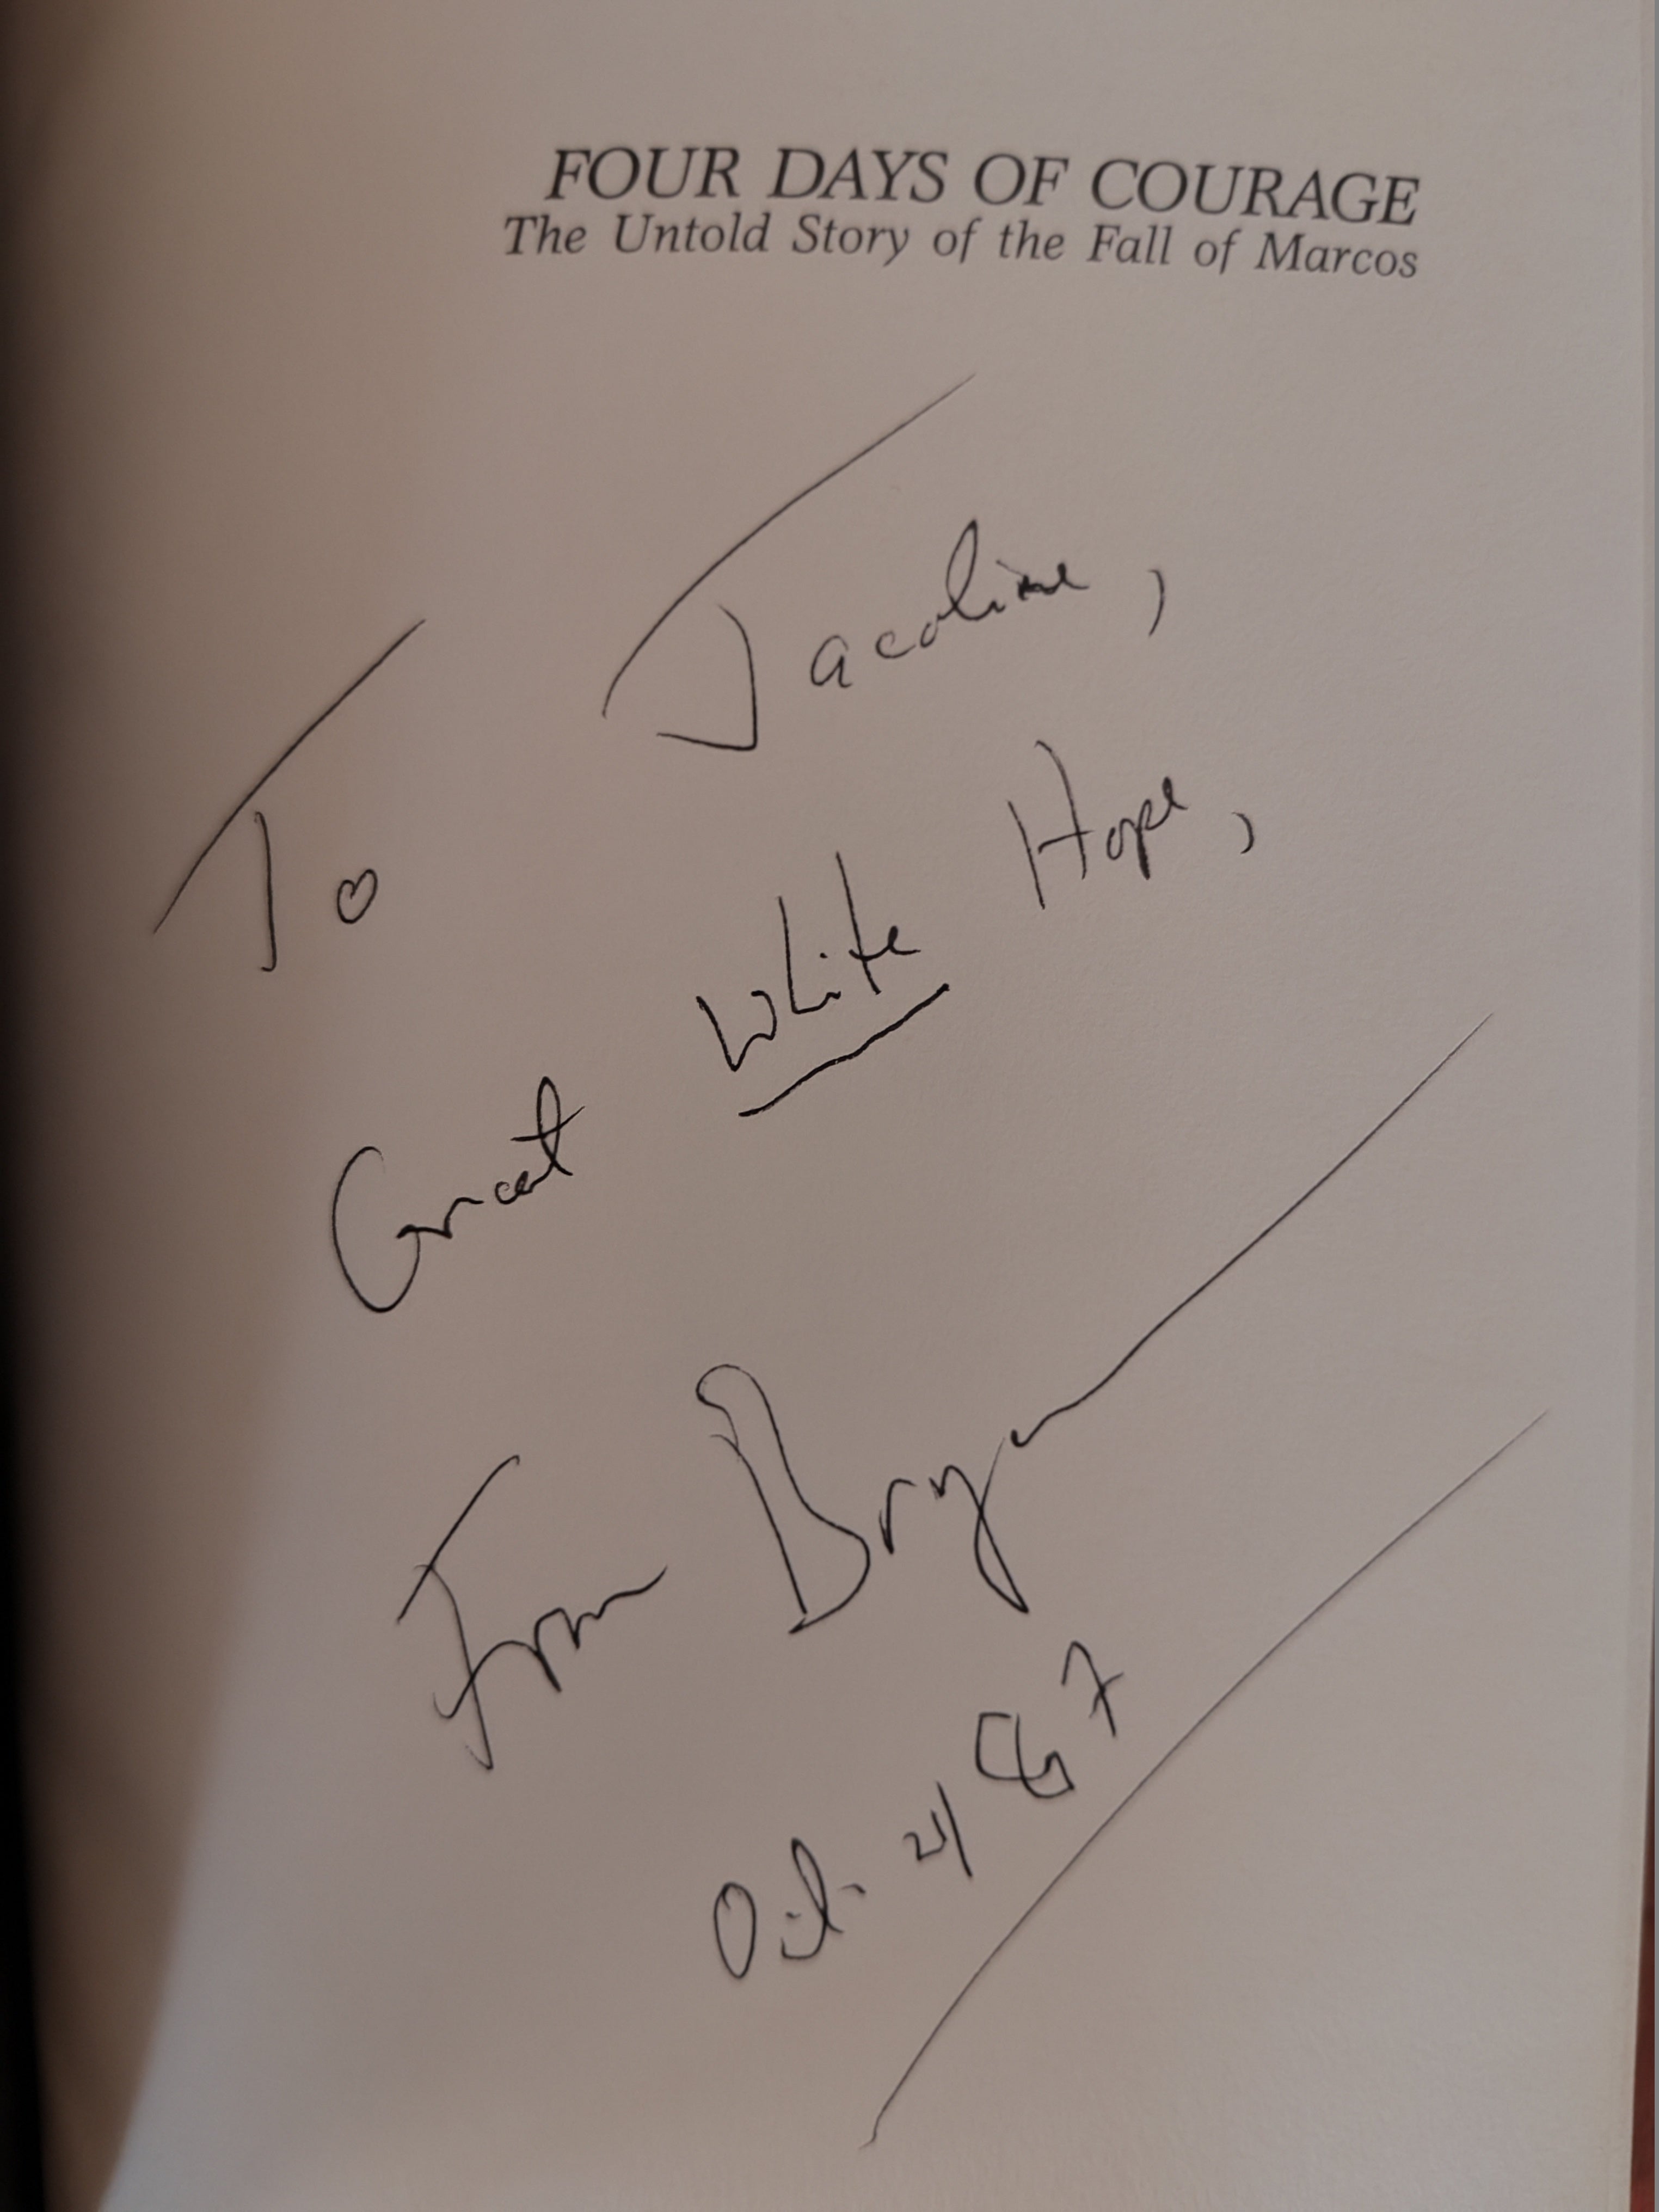 FOUR DAYS OF COURAGE
The Untold Story of the Fall of Marcos
To Jacoline,
Great White Hope,
From Bryan
Oct. 21 87